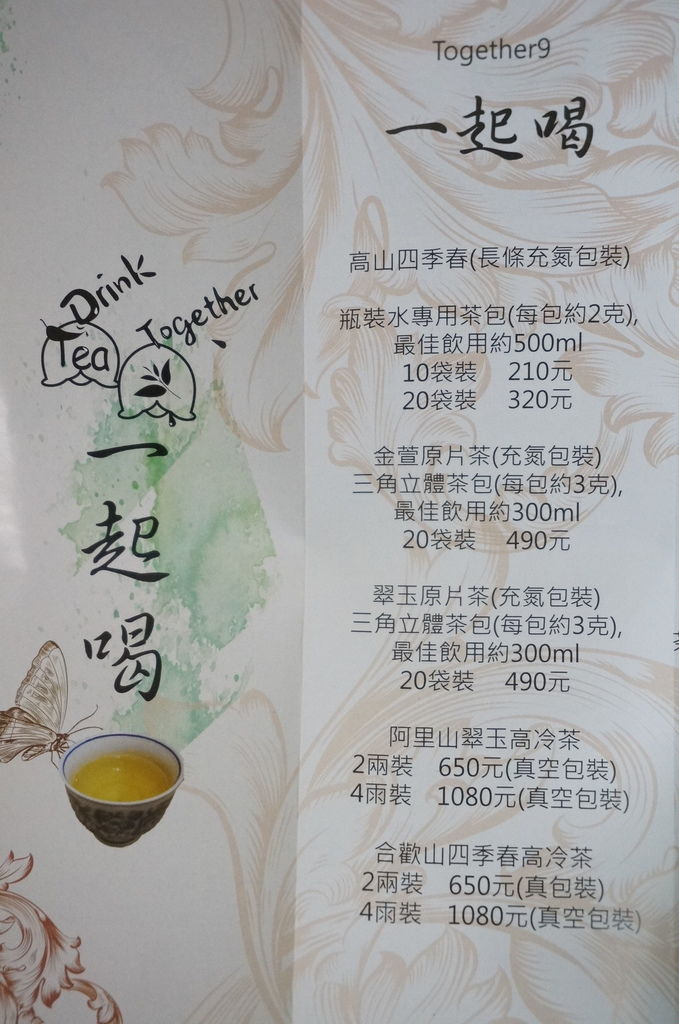 Drink
Together
Tea
一
起
喝
Together9
一起喝
高山四季春(長條充氮包裝)
瓶裝水專用茶包(每包約2克),
最佳飲用約500ml
10袋裝 210元
20袋裝 320元
金萱原片茶(充氮包裝)
三角立體茶包(每包約3克),
最佳飲用約300ml
20袋裝 490元
翠玉原片茶(充氮包裝)
三角立體茶包(每包約3克),
最佳飲用約300ml
20袋裝 490元
阿里山翠玉高冷茶
2兩裝 650元(真空包裝)
4雨裝 1080元(真空包裝)
合歡山四季春高冷茶
2兩裝 650元(真包裝)
4雨裝 1080元(真空包裝)